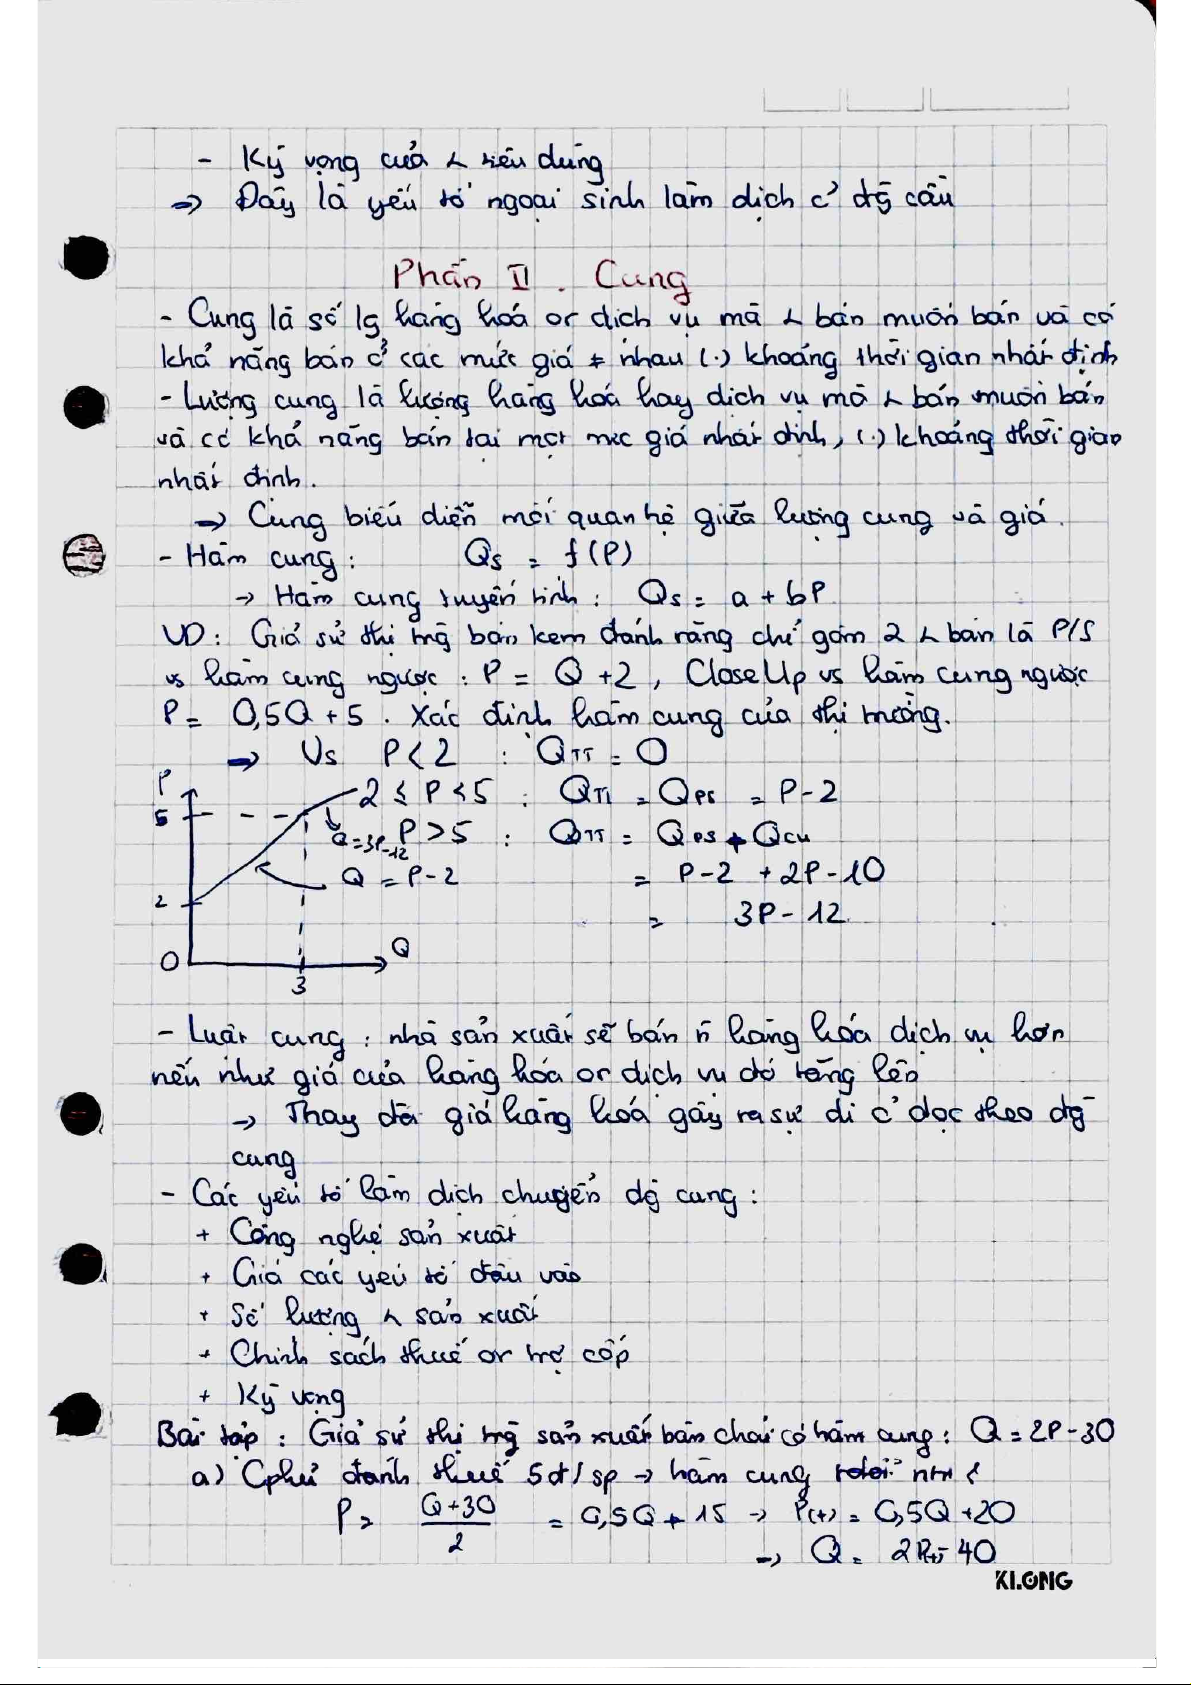 - Kỳ vọng của < tiêu dùng
=> Đây là yếu tố ngoại sinh làm dịch c' đg cầu
Phần II . Cung
- Cung là số lg hàng hoá or dịch vụ mà < bán muốn bán và có
khả năng bán ở các mức giá ≠ nhau (.) khoảng thời gian nhất định
- Lượng cung là lượng hàng hoá hay dịch vụ mà < bán muốn bán
và có khả năng bán tại một mức giá nhất định, (.) khoảng thời gian
nhất định.
=> Cung biểu diễn mối quan hệ giữa lượng cung và giá.
- Hàm cung : Qs = f(P)
-> Hàm cung tuyến tính : Qs = a + bP
VD : Giả sử thị trg bán kem đánh răng chỉ gồm 2 < bán là P/S
vs hàm cung ngược : P = Q +2 , Close Up vs hàm cung ngược
P = 0,5Q + 5 . Xác định hàm cung của thị trường.
=> Vs P < 2 : QTT = 0
2 ≤ P < 5 : QTT = QPS = P - 2
P > 5 : QTT = QPS + QCU
= P-2 + 2P-10
= 3P - 12
P
5
Q=3P-12
Q = P-2
2
O
Q
3
- Luật cung : nhà sản xuất sẽ bán ñ hàng hóa dịch vụ hơn
nếu như giá của hàng hóa or dịch vụ đó tăng lên
-> Thay đổi giá hàng hoá gây ra sự di c' dọc theo đg
cung
- Các yếu tố làm dịch chuyển đg cung :
+ Công nghệ sản xuất
+ Giá các yếu tố đầu vào
+ Số lượng < sản xuất
+ Chính sách thuế or trợ cấp
+ Kỳ vọng
Bài tập : Giả sử thị trg sản xuất bàn chải có hàm cung : Q = 2P-30
a) Cphủ đánh thuế 5đ/sp -> hàm cung
P = Q+30 / 2 = 0,5Q + 15 -> P(t) = 0,5Q +20
-> Q = 2P(t) - 40
KLONG